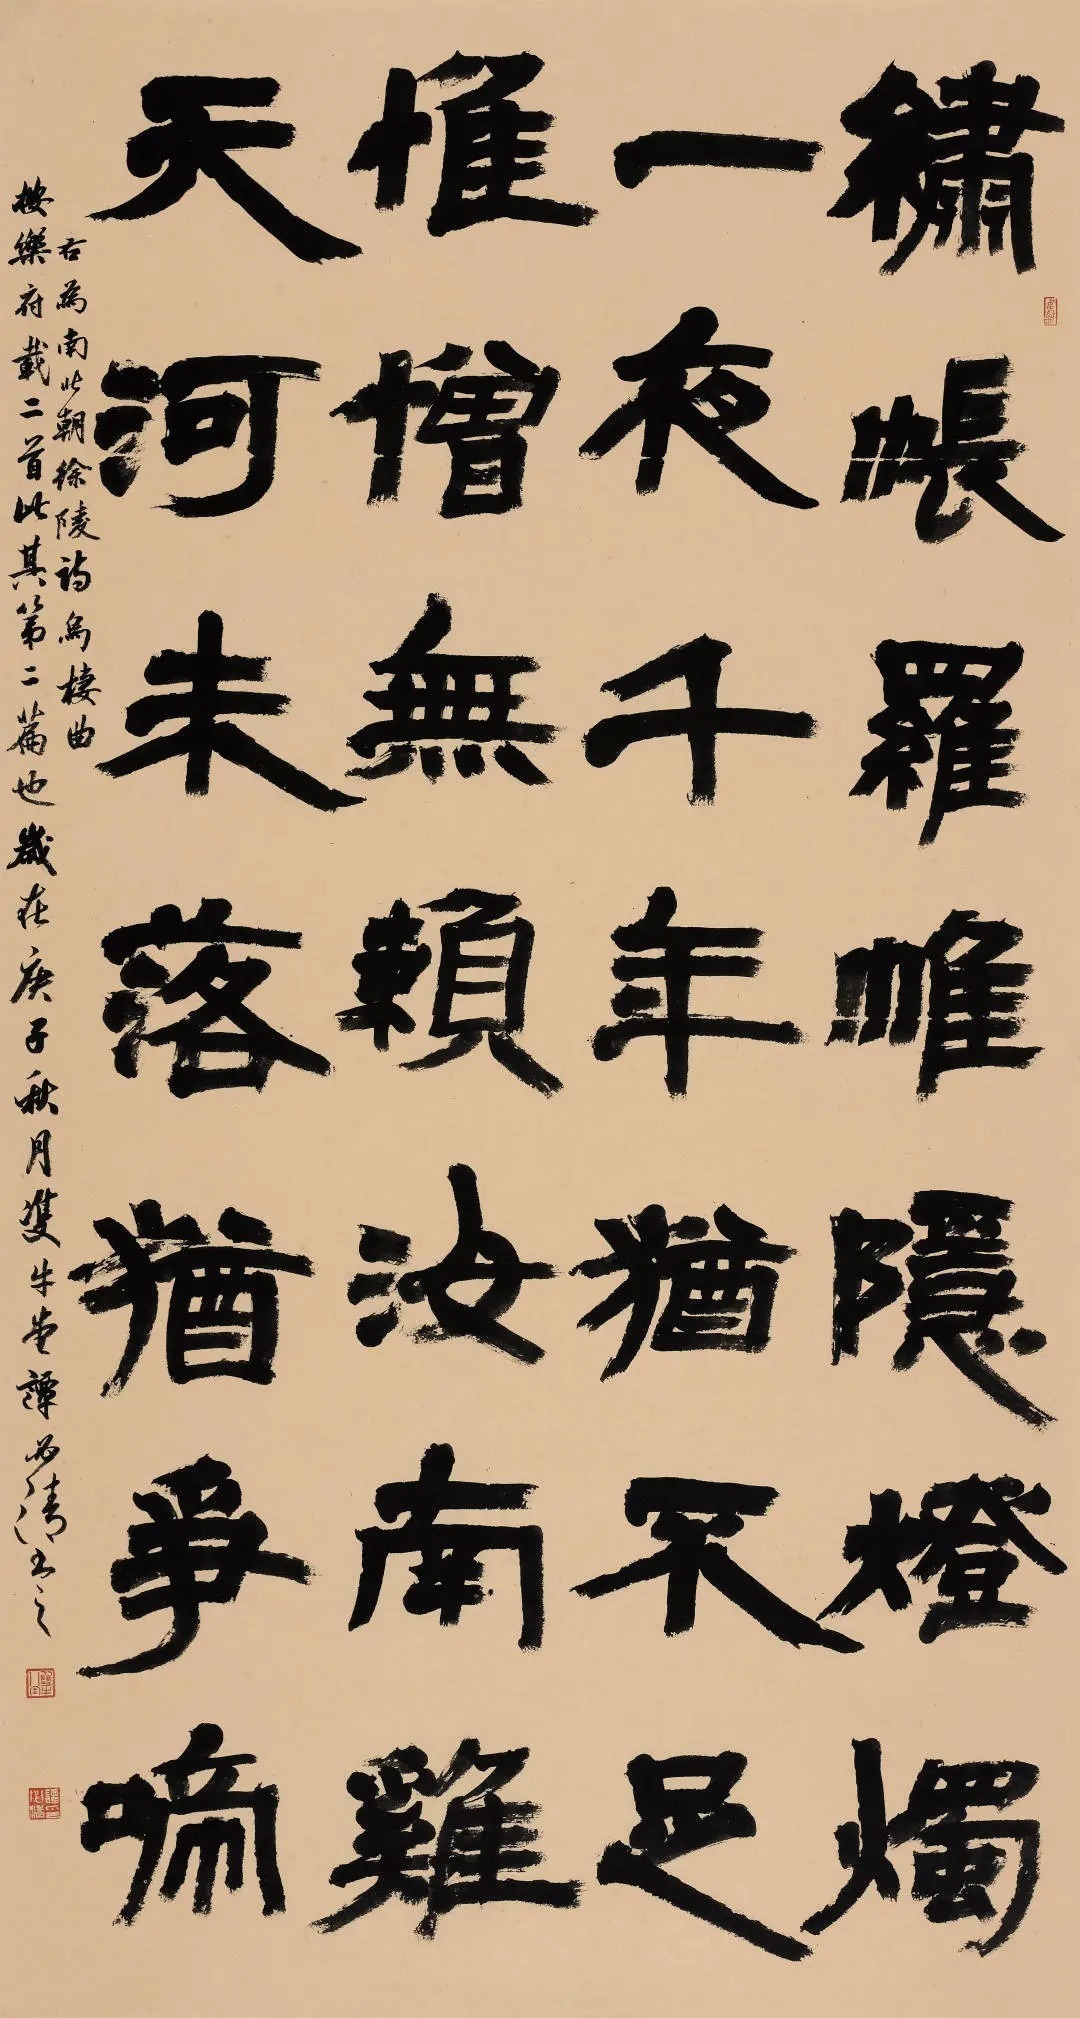 繡帳羅帷隱燈燭
一夜千年猶不足
惟憎無賴汝南雞
天河未落猶爭啼
右為南北朝徐陵詩烏棲曲
按樂府載二首此其第二篇也歲在庚子秋月雙牛堂譚必清書之